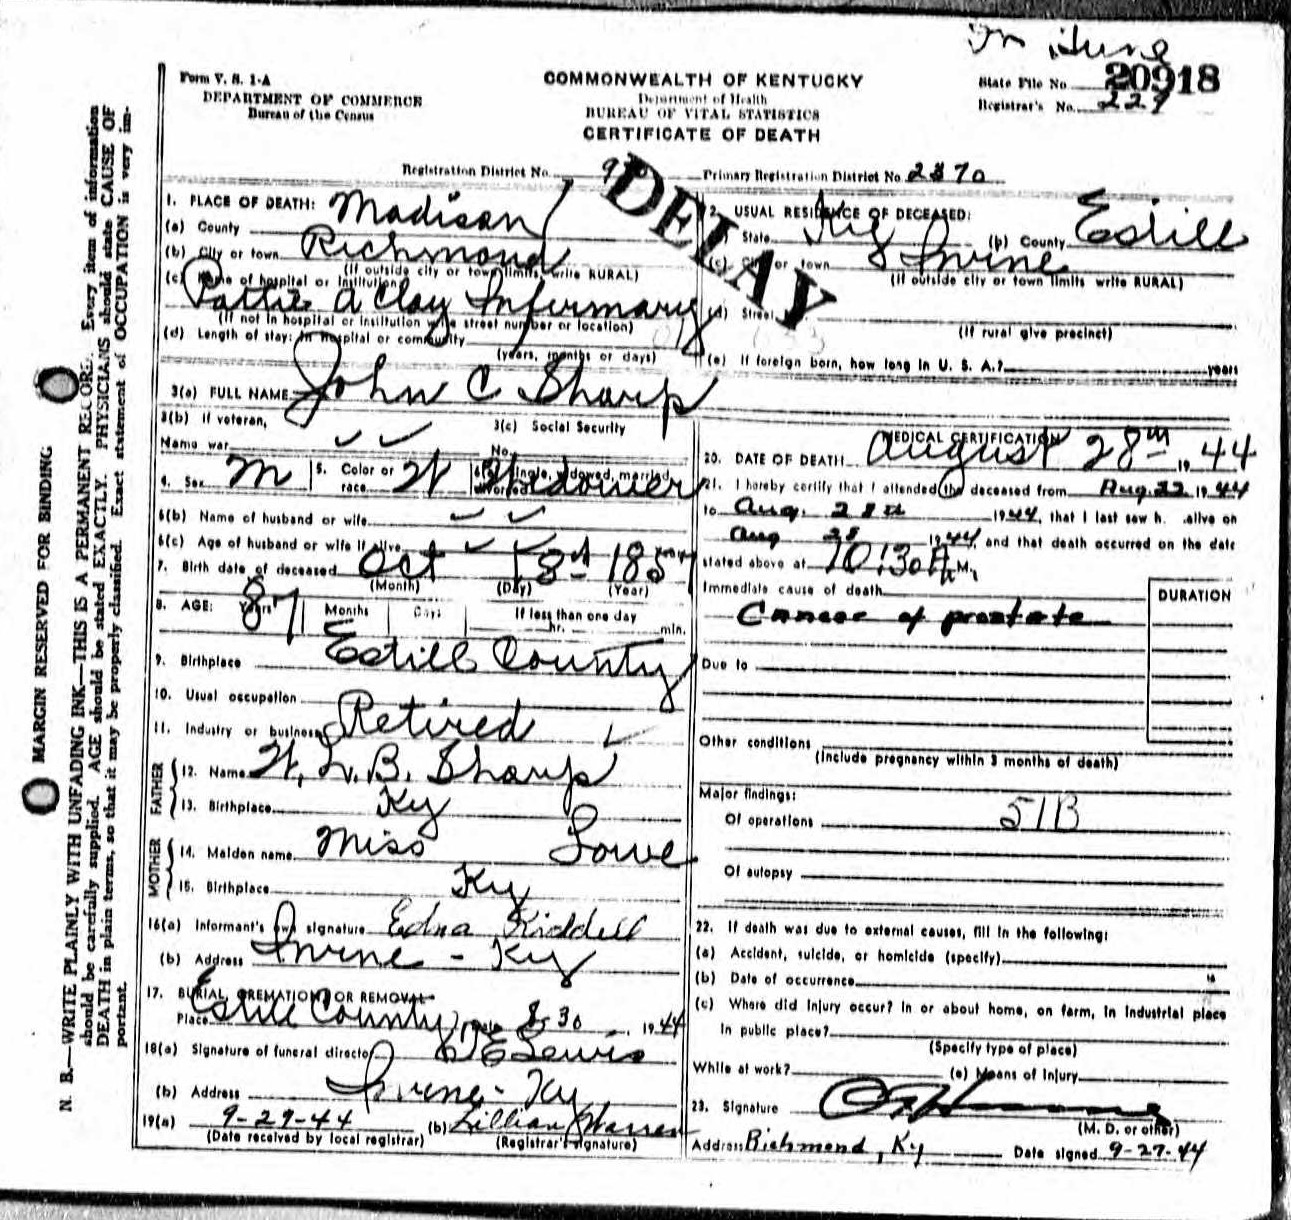 In Irvine
Form V. S. 1-A
DEPARTMENT OF COMMERCE
Bureau of the Census
COMMONWEALTH OF KENTUCKY
Department of Health
BUREAU OF VITAL STATISTICS
CERTIFICATE OF DEATH
State File No. 20918
Registrar's No. 229
Registration District No.
Primary Registration District No. 2370
DELAY
1. PLACE OF DEATH:
(a) County Madison
(b) City or town Richmond
(If outside city or town limits write RURAL)
(c) Name of hospital or institution
Pattie A Clay Infirmary
(If not in hospital or institution write street number or location)
(d) Length of stay: In hospital or community
(years, months or days)
2. USUAL RESIDENCE OF DECEASED:
State Ky (b) County Estill
(c) City or town Irvine
(If outside city or town limits write RURAL)
(d) Street
(If rural give precinct)
(e) If foreign born, how long in U. S. A.? years
3(a) FULL NAME John C Sharp
3(b) If veteran,
Name war
3(c) Social Security
No.
4. Sex M 5. Color or race W 6(a) Single, widowed, married, divorced Widower
6(b) Name of husband or wife
6(c) Age of husband or wife if alive
7. Birth date of deceased Oct
(Month) (Day) (Year)
8. AGE: Years 87 Months Days If less than one day
hr. min.
9. Birthplace Estill County
10. Usual occupation Retired
11. Industry or business
FATHER
12. Name W. L. B. Sharp
13. Birthplace Ky
MOTHER
14. Maiden name Miss Lowe
15. Birthplace Ky
16(a) Informant's own signature Edna Kiddell
(b) Address Irvine - Ky
17. BURIAL, CREMATION OR REMOVAL
Place Estill County Date 8-30, 1944
18(a) Signature of funeral director Lewis
(b) Address Irvine - Ky
19(a) 9-29-44 (b) Lillian Warren
(Date received by local registrar) (Registrar's signature)
MEDICAL CERTIFICATION
20. DATE OF DEATH August 28th 1944
21. I hereby certify that I attended the deceased from Aug. 22 1944
to Aug. 28th 1944, that I last saw h. alive on
Aug 28 1944, and that death occurred on the date
stated above at 10:30 A. M.
Immediate cause of death
Cancer of prostate
DURATION
Due to
Other conditions
(Include pregnancy within 3 months of death)
Major findings:
Of operations 51B
Of autopsy
22. If death was due to external causes, fill in the following:
(a) Accident, suicide, or homicide (specify)
(b) Date of occurrence
(c) Where did injury occur? In or about home, on farm, in industrial place
in public place?
(Specify type of place)
While at work? (e) Means of injury
23. Signature
(M. D. or other)
Address Richmond, Ky Date signed 9-27-44
MARGIN RESERVED FOR BINDING
N. B.—WRITE PLAINLY WITH UNFADING INK—THIS IS A PERMANENT RECORD. Every item of information
should be carefully supplied. AGE should be stated EXACTLY. PHYSICIANS should state CAUSE OF
DEATH in plain terms, so that it may be properly classified. Exact statement of OCCUPATION is very im-
portant.